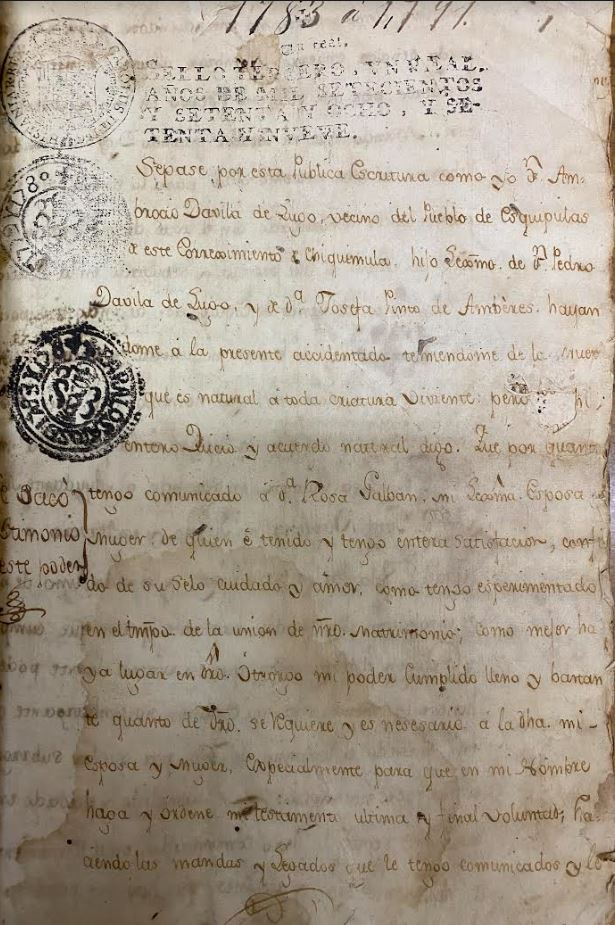 1783 á 1,791.
Un real.
SELLO TERCERO, VN REAL.
AÑOS DE MIL SETECIENTOS
Y SETENTA Y OCHO, Y SE-
TENTA Y NUEVE.
Sepase por esta Publica Escritura como yo Dn. Am-
brocio Davila de Lugo, vecino del Pueblo de Esquipulas
de este Correximiento de Chiquimula, hijo Lexmo. de Dn. Pedro
Davila de Lugo, y de Da. Josefa Pinto de Ambères, hayan
dome á la presente accidentado temiendome de la muer
que es natural á toda criatura viviente pero
entero Juicio y acuerdo natural digo. Que por quanto
tengo comunicado á Da. Rosa Galban, mi Lexma. Esposa
muger, de quien è tenido y tengo entera satisfacion, confi
do de su Selo cuidado y amor, como tengo esperimentado
en el tmpo. de la union de nro. matrimonio; como mejor ha
ya lugar en dro. Otorgo mi poder Cumplido lleno y bastan
te quanto de dro. se requiere y es nesesario á la dha. mi-
esposa y muger, Especialmente para que en mi Nombre
haga y órdene mi testamento ultima y final voluntad, ha-
ciendo las mandas y Legados que le tengo comunicados y lo
Sacó
timonio
este poder
1779 Y 1780